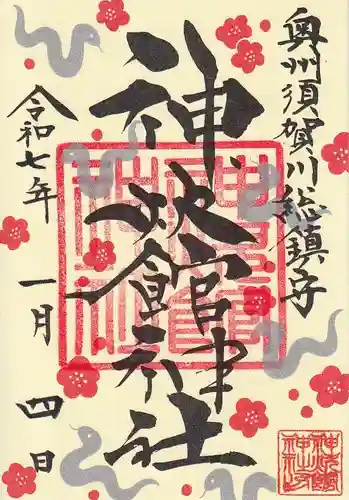 奥州須賀川総鎮守
神炊館神社
令和七年 一月 四日